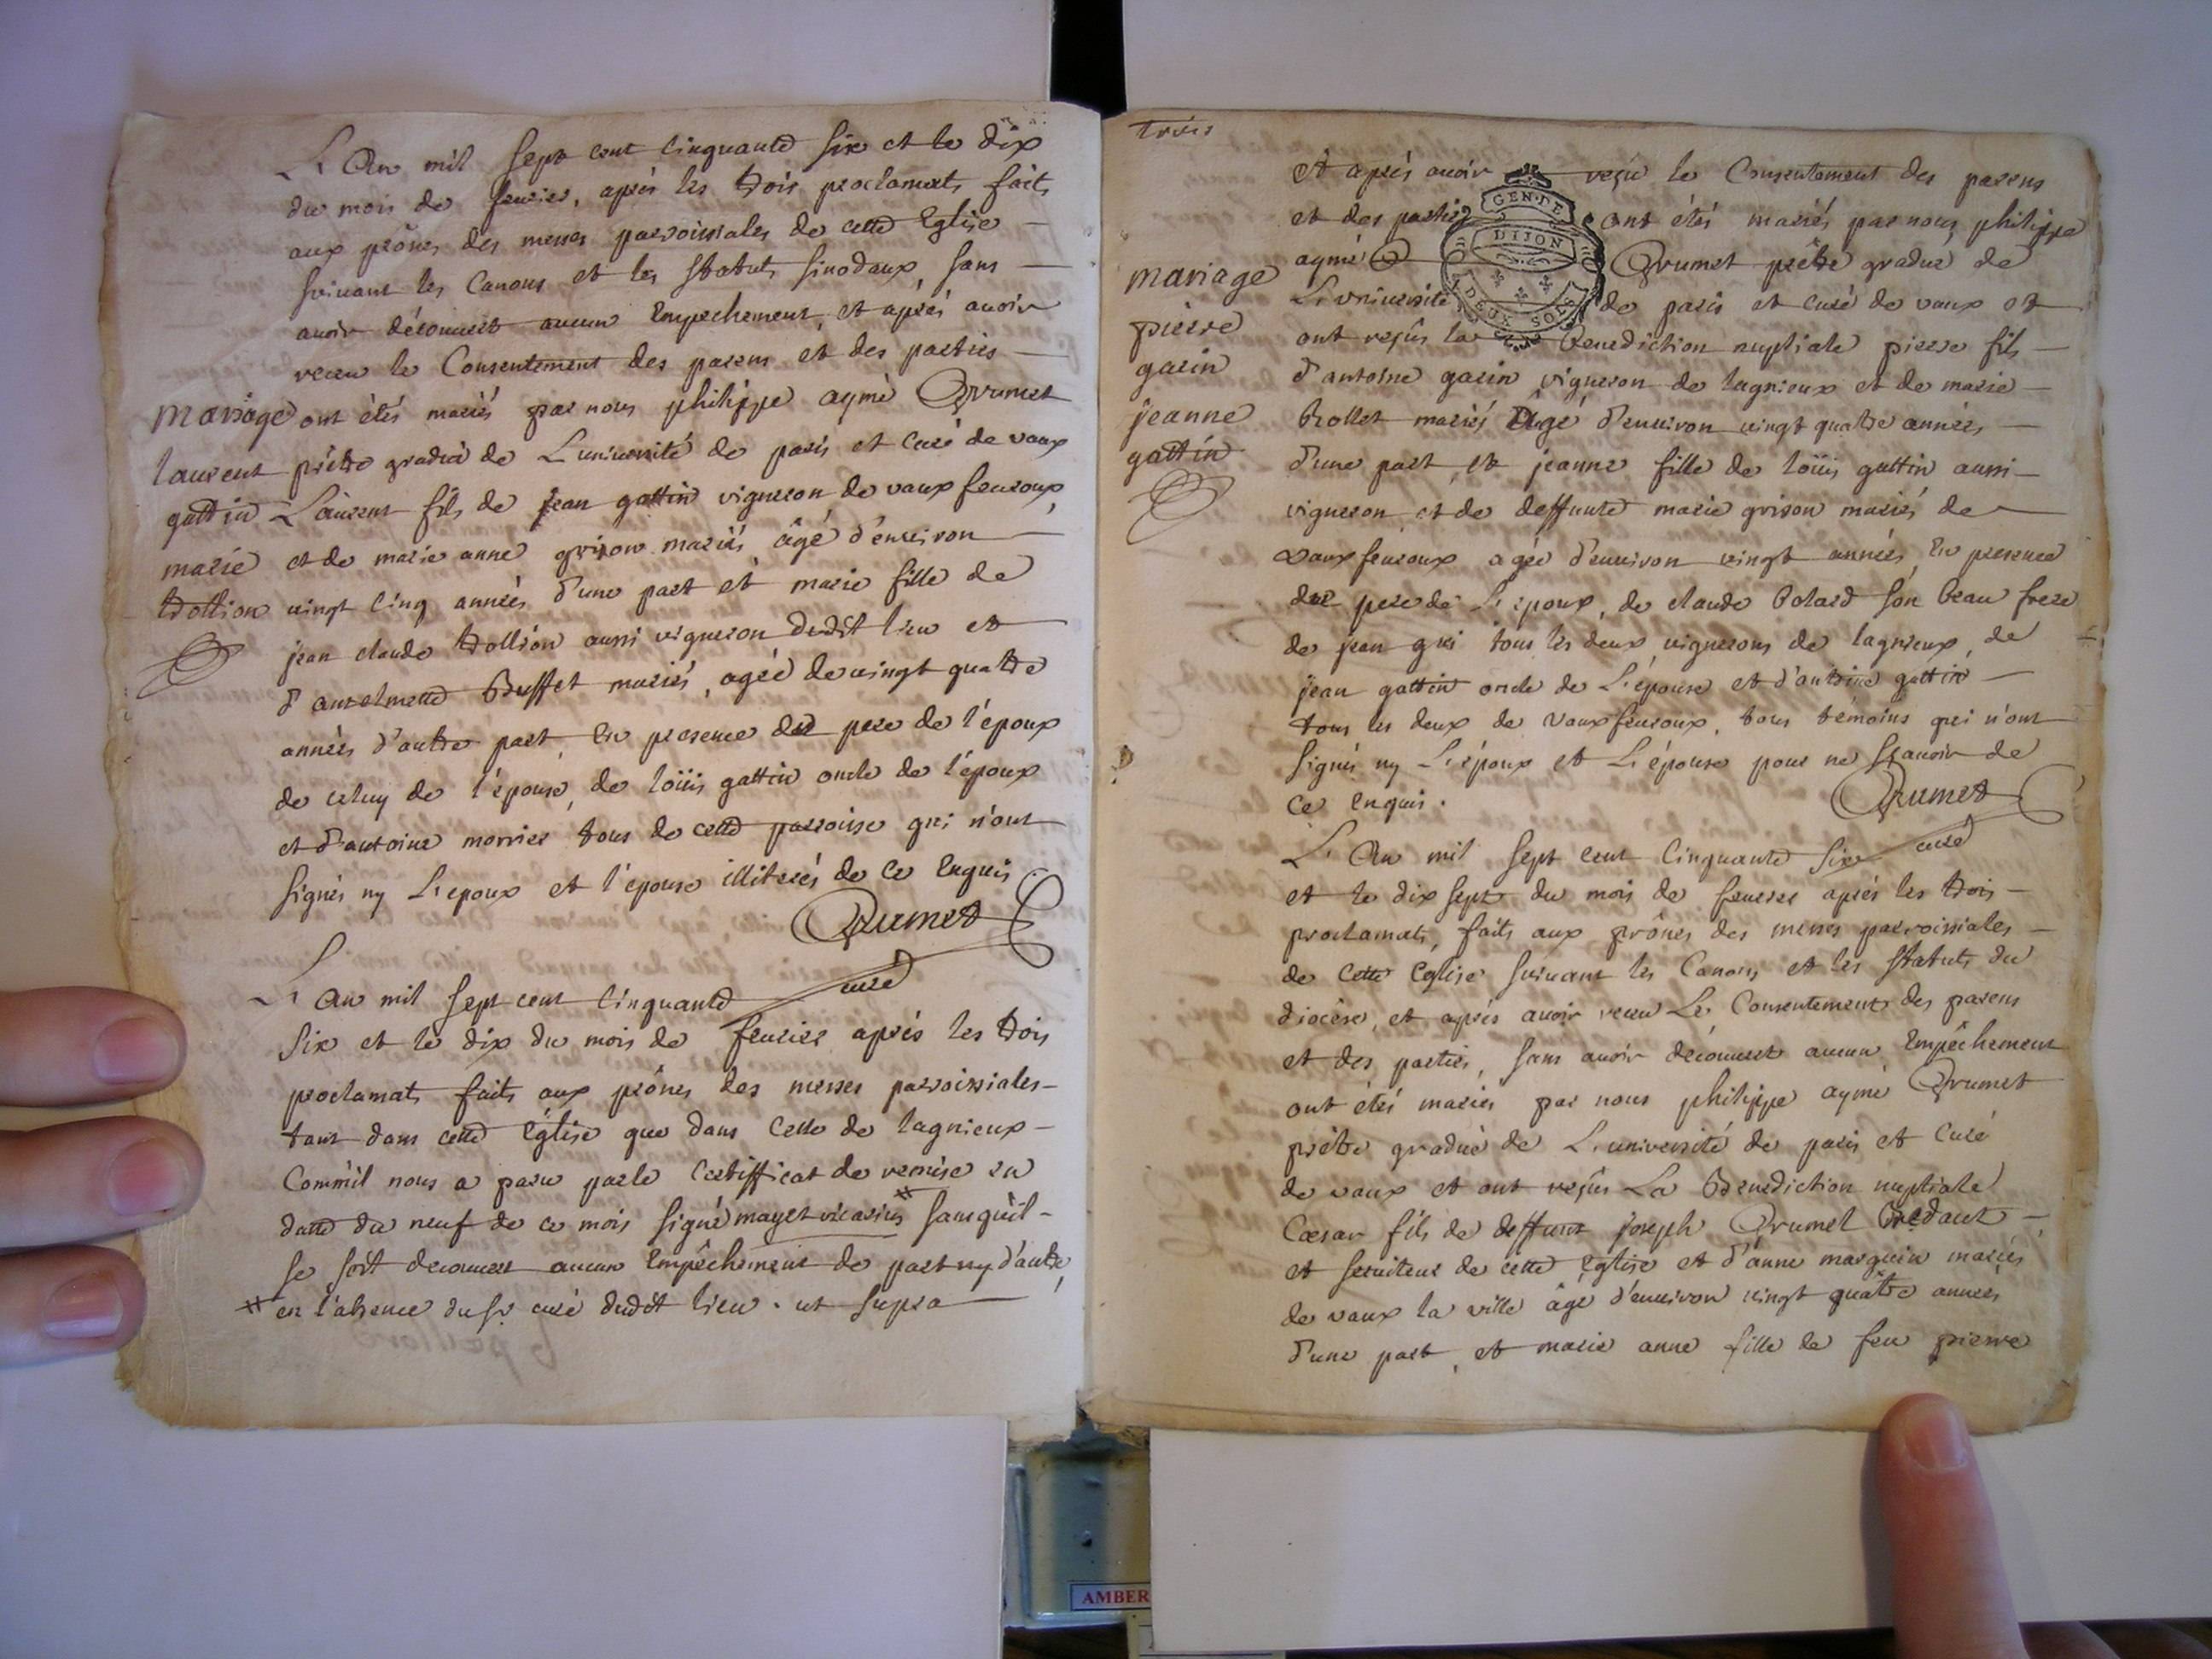 L'An mil sept cent cinquante six et le dix
du mois de feurier, aprés les trois proclamats faits
aux prônes des messes parroissiales de cette Eglise
suiuant les Canons et les statuts sinodaux sans
auoir découuert aucun Empechement, et aprés auoir
receu le Consentement des parens et des parties
mariage ont étés mariés par nous philippe aymé Brumet
laurent prêtre gradué de L'université de paris et curé de vaux
guttin Laurent fils de jean guttin vigneron de vaux feuroux,
marie et de marie anne grison mariés âgé d'enuiron
trollion uingt cinq années d'une part et marie fille de
jean claude trollion aussi vigneron dudit lieu et
d'anselmette Buffet mariés, agée de uingt quatre
années d'autre part, En presence du pere de l'époux
de celuy de l'épouse, de loüis guttin oncle de l'époux
et d'antoine morrier tous de cette parroisse qui n'ont
signés ny L'epoux et l'epouse illiterés de ce Enquis.
Brumet
curé
L'An mil sept cent cinquante
six et le dix du mois de feurier aprés les trois
proclamats faits aux prônes des messes parroissiales
tant dans cette église que dans celle de lagnieux
Comm'il nous a paru par le Certifficat de remise en
datte du neuf de ce mois signé mayet vicarius # sans qu'il
se soit decouuert aucun Empêchement de part ny d'autre,
# en l'absence du sr. curé dudit lieu. ut supra
trois
et aprés auoir reçu le Consentement des parens
et des parties ont étés mariés par nous philippe
aymé B Brumet prêtre gradué de
mariage
L'vniuersité de paris et curé de vaux et
pierre
ont reçus la Benediction nuptiale pierre fils
garin
d'antoine garin vigneron de lagnieux et de marie
jeanne
trollet mariés âgé d'enuiron uingt quatre années
guttin
d'une part, et jeanne fille de loüis guttin aussi
vigneron et de deffunte marie grison mariés de
vaux feuroux agée d'enuiron vingt années, En presence
du pere de L'epoux, de claude Bolard son beau frere
de jean gui tous les deux vignerons de lagnieux, de
jean guttin oncle de L'épouse et d'antoine guttin
tous les deux de vaux feuroux, tous témoins qui n'ont
signés ny L'époux et L'épouse pour ne sçauoir de
ce enquis.
Brumet
curé
L'An mil sept cent cinquante six
et le dix sept du mois de feurier aprés les trois
proclamats, faits aux prônes des messes parroissiales
de cette Eglise suiuant les Canons et les statuts du
diocèse, et aprés auoir receu Le Consentement des parens
et des parties, sans auoir découuert aucun Empêchement
ont étés mariés par nous philippe aymé Brumet
prêtre gradué de L'université de paris et curé
de vaux et ont reçus La Benediction nuptiale
Cæsar fils de deffunt joseph Brumet
et seruiteur de cette Eglise et d'anne marguin mariés
de vaux la ville âgé d'enuiron vingt quatre années
d'une part, et marie anne fille de feu pierre